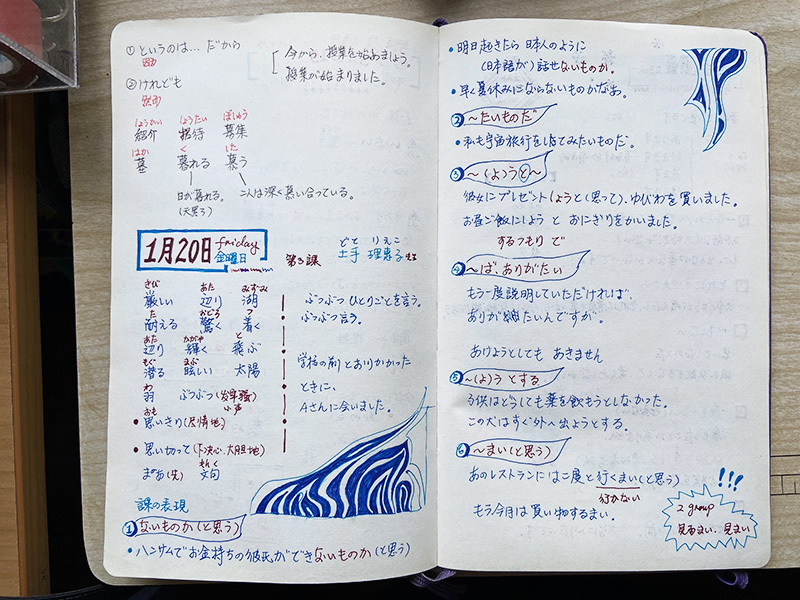 ①というのは…だから
②けれども
今から、授業を始めましょう。
授業が始まりました。
しょうかい しょうたい ぼしゅう
紹介 招待 募集
はか く した
墓 暮れる 慕う
日が暮れる。
二人は深く慕い合っている。
(天黑了)
1月20日 friday 金曜日
第3課
どて りえこ
土手 理恵子
きび あた みずうみ
厳しい 辺り 湖
た おどろ つ
耐える 驚く 着く
あた かがや と
辺り 輝く 飛ぶ
もぐ まぶ
潜る 眩しい 太陽
わ
羽 ぶつぶつ(发牢骚)
小声
おも
•思いきり(尽情地)
•思い切って(下决心、大胆地)
まあ(先) 文句
もんく
ぶつぶつひとりごとを言う。
ぶつぶつ言う。
学校の前をとおりかかった
ときに、
Aさんに会いました。
課の表現
①ないものか(と思う)
•ハンサムでお金持ちの彼氏ができないものか(と思う)
•明日起きたら日本人のように
(日本語が)話せないものか。
•早く夏休みにならないものかなあ。
②～たいものだ
•私も宇宙旅行をしてみたいものだ。
③～(よ)うと～
彼女にプレゼントしようと(思って)、ゆびわを買いました。
お昼ご飯にしようと おにぎりをかいました。
するつもりで
④～ば、ありがたい
もう一度説明していただければ、
ありがたいんですが。
あけようとしても あきません
⑤～(よ)うとする
子供はどうしても薬を飲もうとしなかった。
この犬はすぐ外へ出ようとする。
⑥～まい(と思う)
あのレストランには二度と行くまい(と思う)
行かない
もう今月は買い物するまい。
!!!
2 group
見るまい、見まい